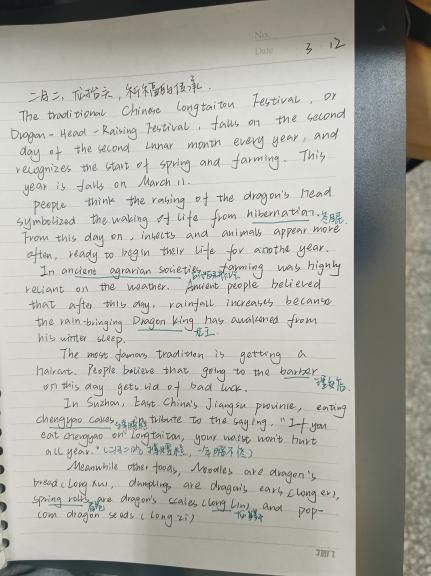 No.
Date 3 12
二月二,龙抬头,祈福的传承.
The traditional Chinese Longtaitou Festival, or
Dragon-Head-Raising Festival, falls on the second
day of the second lunar month every year, and
recognizes the start of spring and farming. This
year is falls on March 11.
people think the raising of the dragon's head
symbolized the waking of life from hibernation. 冬眠
From this day on, insects and animals appear more
often, ready to begin their life for anothe year.
In ancient agrarian societies, farming was highly
reliant on the weather. Ancient people believed
that after this day, rainfall increases because
the rain-bringing Dragon king has awakened from
龙王
his winter sleep.
The most famous tradition is getting a
haircut. People believe that going to the barber
理发店
on this day gets rid of bad luck.
In Suzhou, East China's Jiangsu provinie, eating
chengyao cakes in tribute to the saying. "If you
撑腰糕
eat chengyao on Longtaitou, your waist won't hurt
all year." (二月二吃撑腰糕,一年腰不疼)
Meanwhile other foods, Noodles are dragon's
bread (long xu), dumpling are dragon's ears (long er),
spring rolls are dragon's scales (long lin) and pop-
龙鳞
corn dragon seeds (long zi)